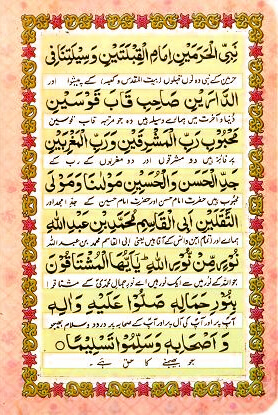 نَبِيِّ الْحَرَمَيْنِ اِمَامِ الْقِبْلَتَيْنِ وَسِيْلَتِنَا فِي
حرمین کے نبی دونوں قبلوں (بیت المقدس و کعبہ) کے پیشوا اور
الدَّارَيْنِ صَاحِبِ قَابَ قَوْسَيْنِ
دنیا و آخرت میں ہمارے وسیلہ ہیں جو مرتبہ قاب قوسین
مَحْبُوْبِ رَبِّ الْمَشْرِقَيْنِ وَرَبِّ الْمَغْرِبَيْنِ
پر فائز ہیں دو مشرقوں اور دو مغربوں کے رب کے
جَدِّ الْحَسَنِ وَالْحُسَيْنِ مَوْلٰنَا وَمَوْلَى
محبوب ہیں حضرت امام حسن اور حضرت امام حسین کے جد امجد اور
الثَّقَلَيْنِ اَبِى الْقَاسِمِ مُحَمَّدِ بْنِ عَبْدِ اللهِ
ہمارے اور تمام جن و انس کے آقا ہیں یعنی ابی القاسم محمد بن عبد اللہ
نُوْرٍ مِّنْ نُّوْرِ اللهِ يٰاَيُّهَا الْمُشْتَاقُوْنَ
جو اللہ کے نور میں سے ایک نور ہیں اے نور جمال محمدی کے مشتاقو
بِنُوْرِ جَمَالِهٖ صَلُّوْا عَلَيْهِ وَاٰلِهٖ
آپ پر اور آپ کی آل پر اور آپ کے صحابہ پر درود و سلام بھیجو
وَاَصْحَابِهٖ وَسَلِّمُوْا تَسْلِيْمًا
جو بھیجنے کا حق ہے ۔